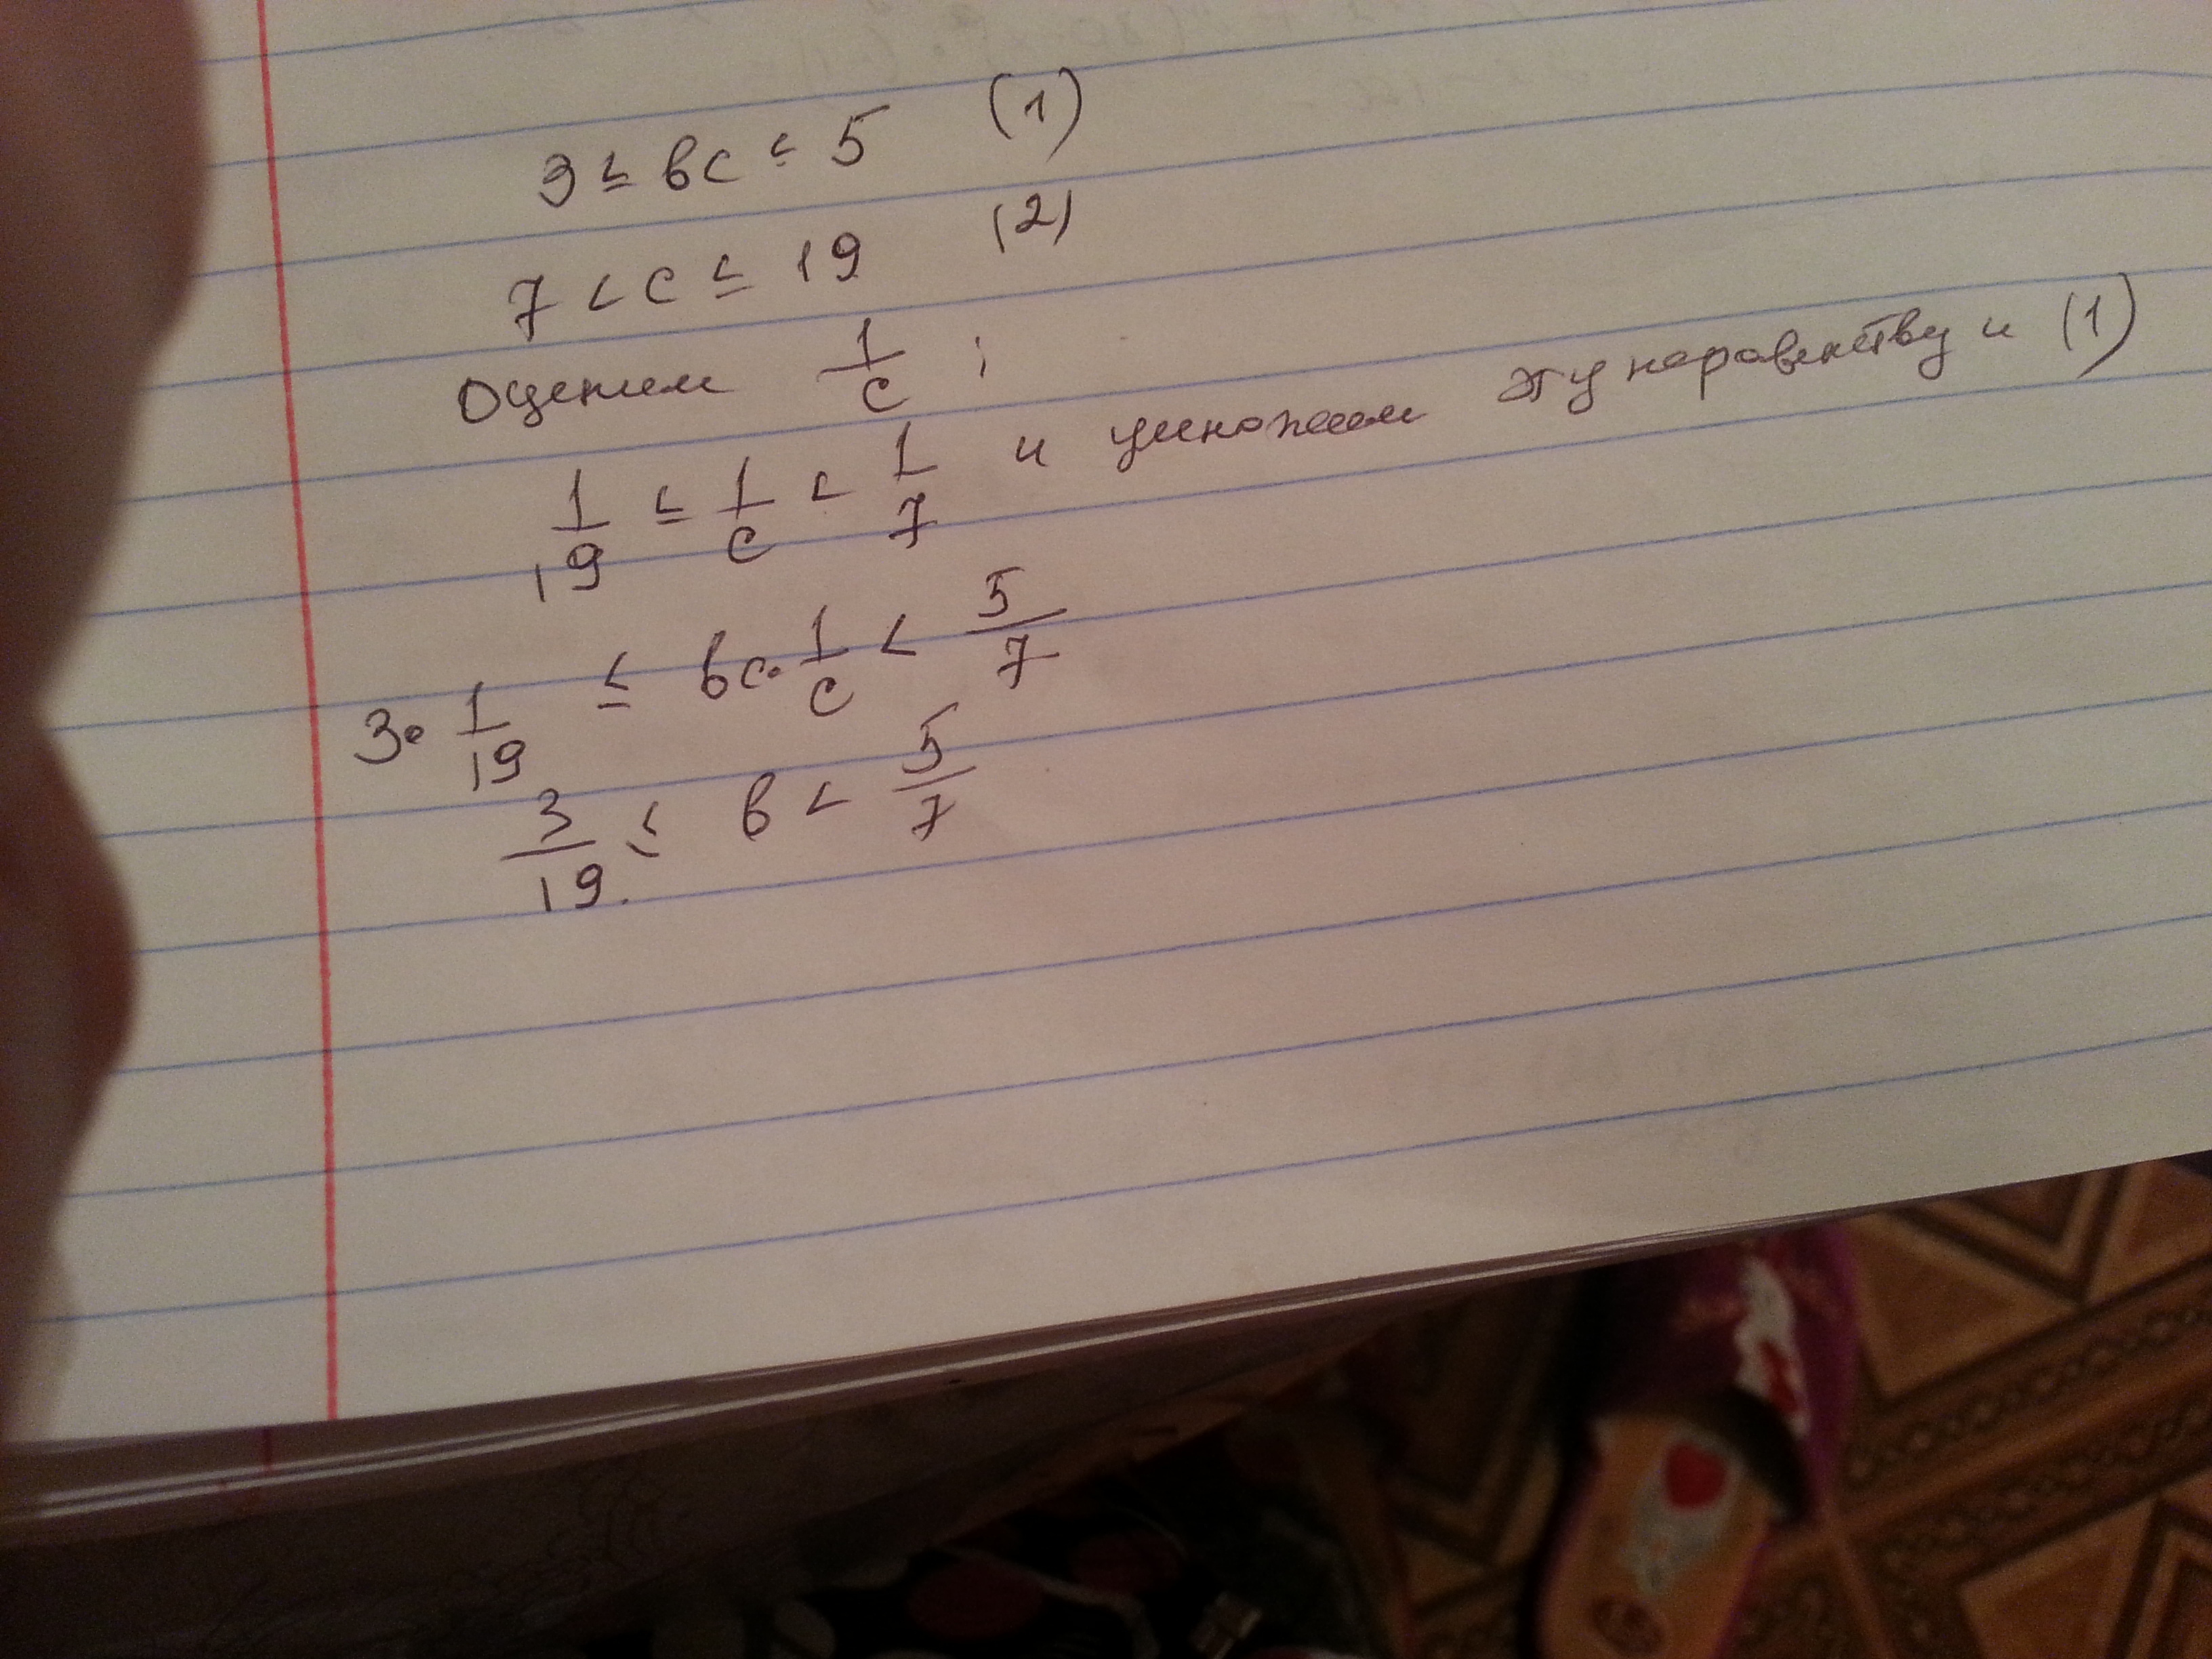 3 ≤ вс ≤ 5 (1)
7 < с ≤ 19 (2)
Оценим 1/с ;
1/19 ≤ 1/с < 1/7 и умножим эту неравенству и (1)
3 · 1/19 ≤ вс · 1/с < 5/7
3/19 ≤ в < 5/7